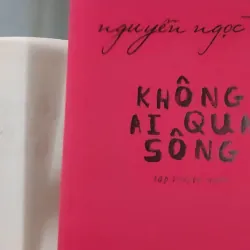 nguyễn ngọc
KHÔNG
AI QUA
SÔNG